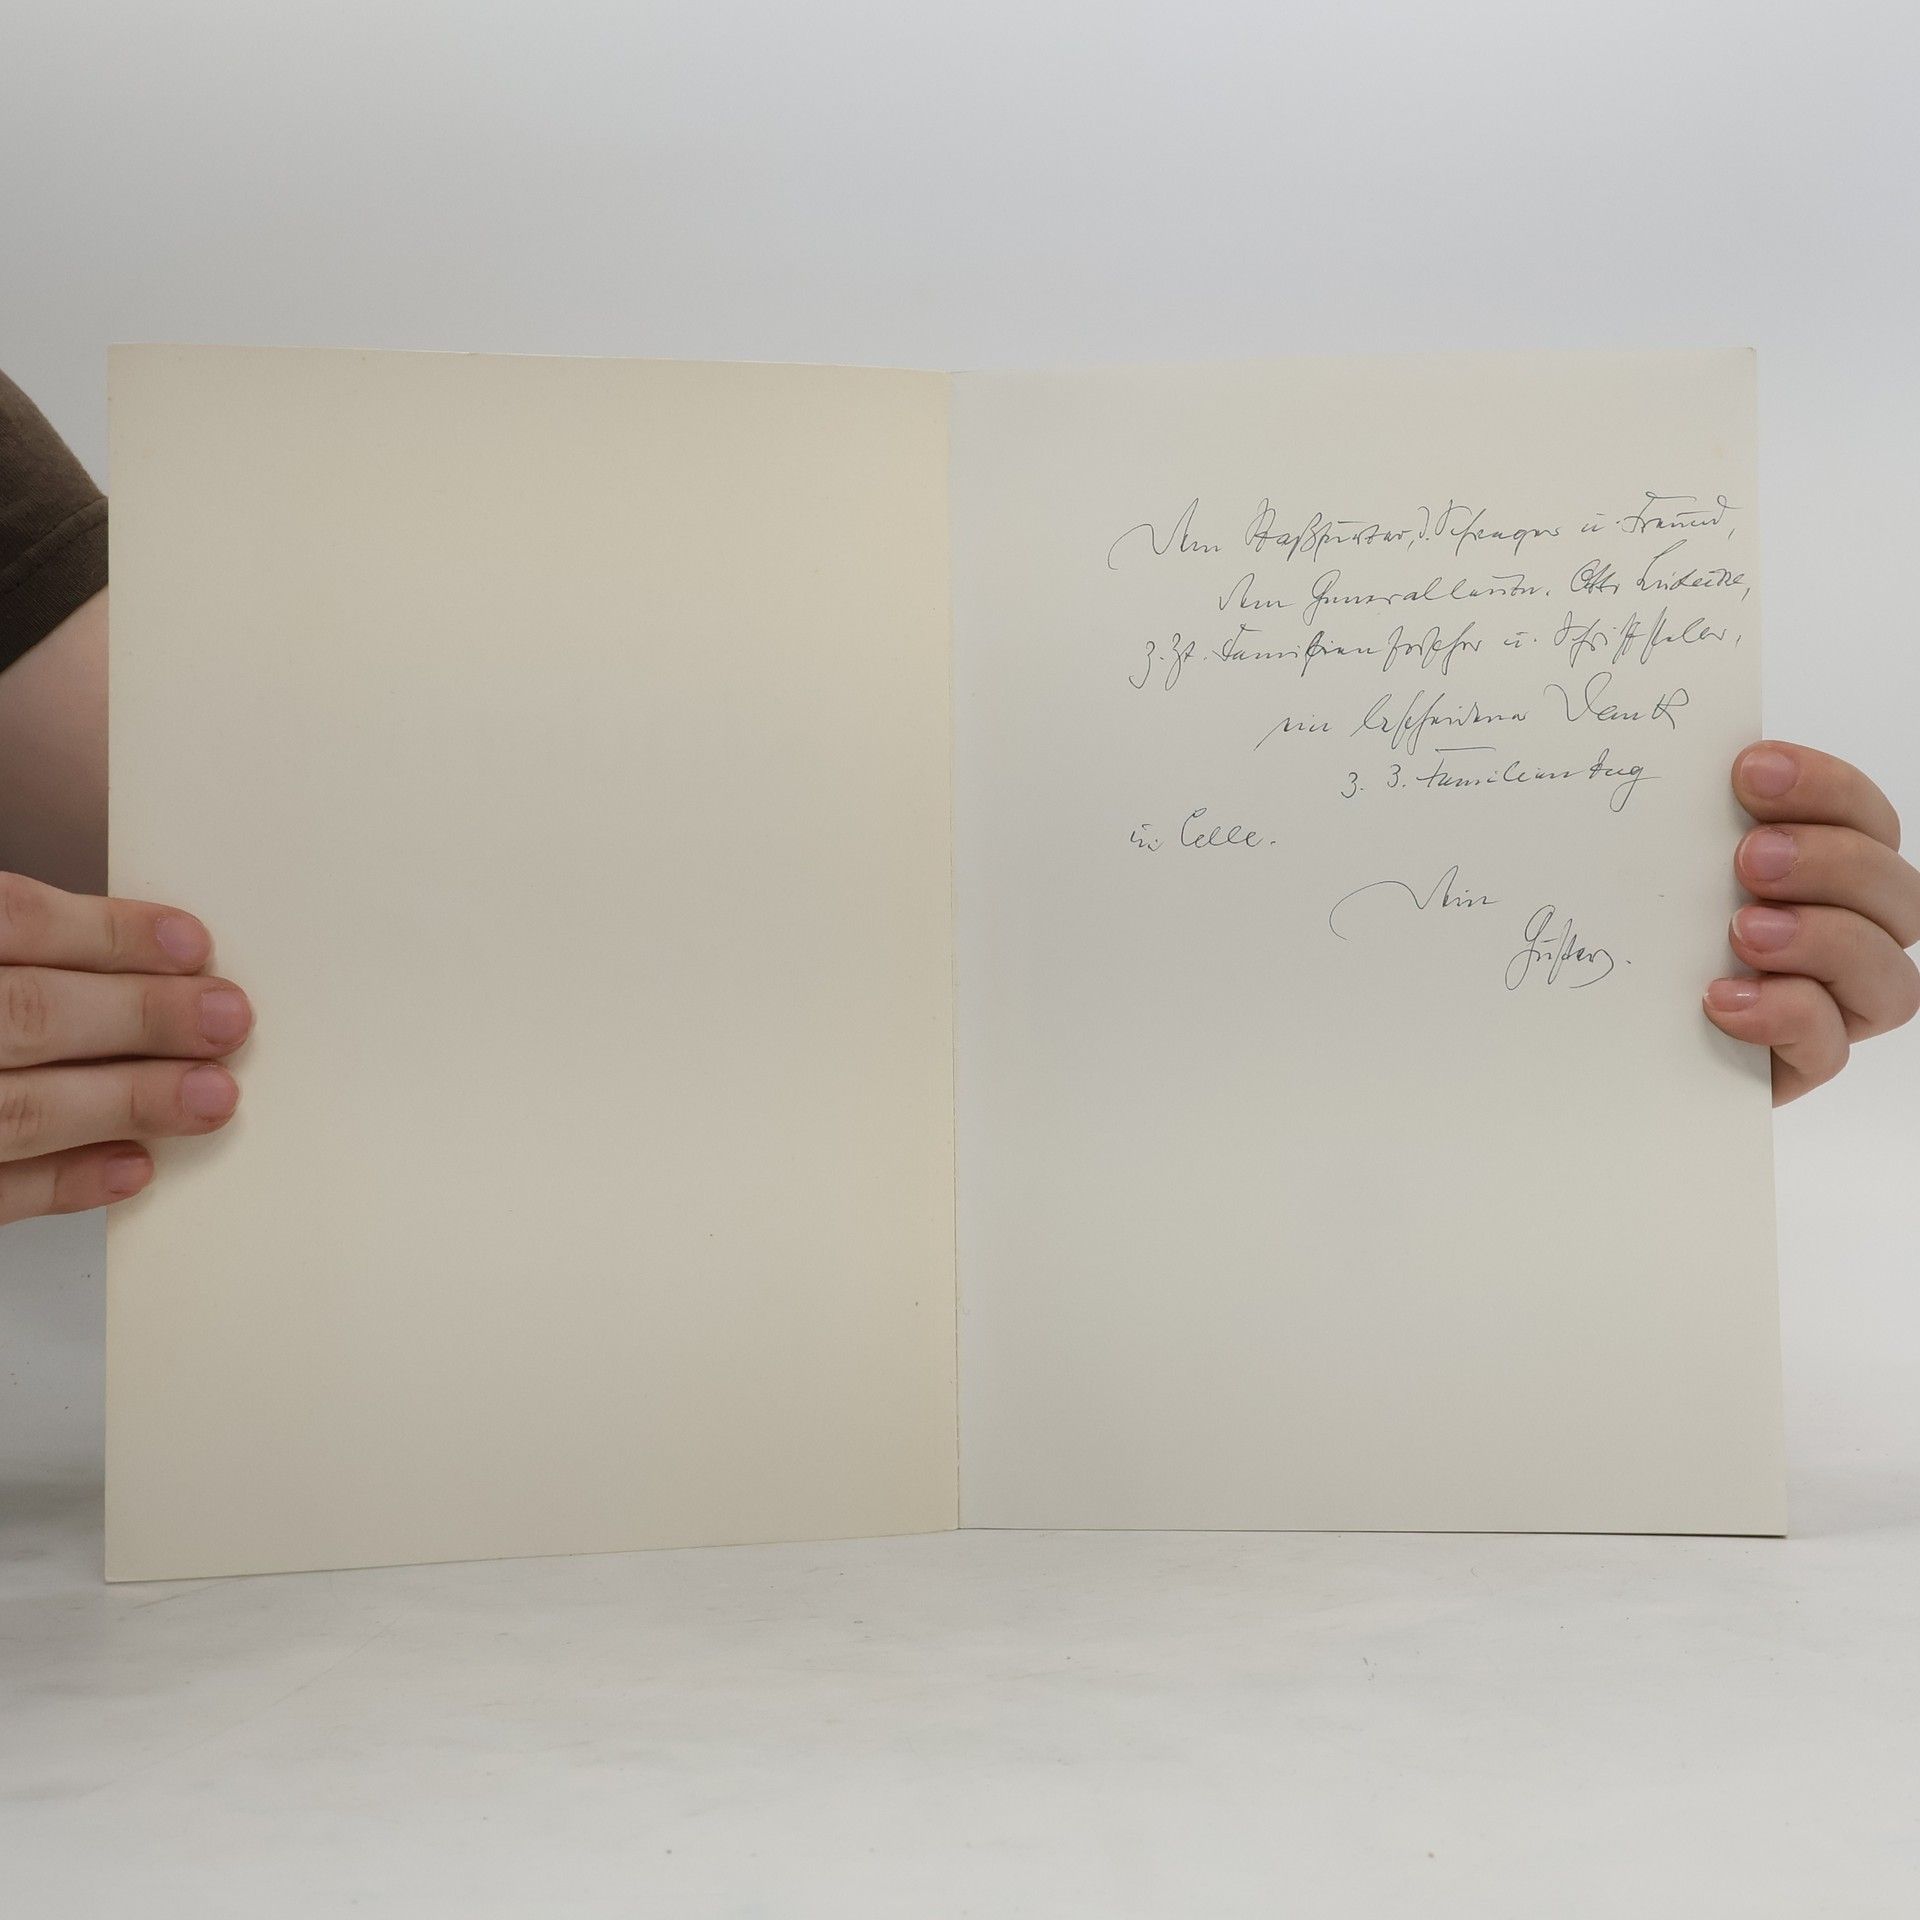 Dem Staßfurter, d. Schwager u. Freund,
dem Generalleutn. Otto
z. Zt. Familienforscher u. Schriftsteller,
ein bescheidener Dank
z. 3. Familientag
in Celle.
Dein
Gustav.